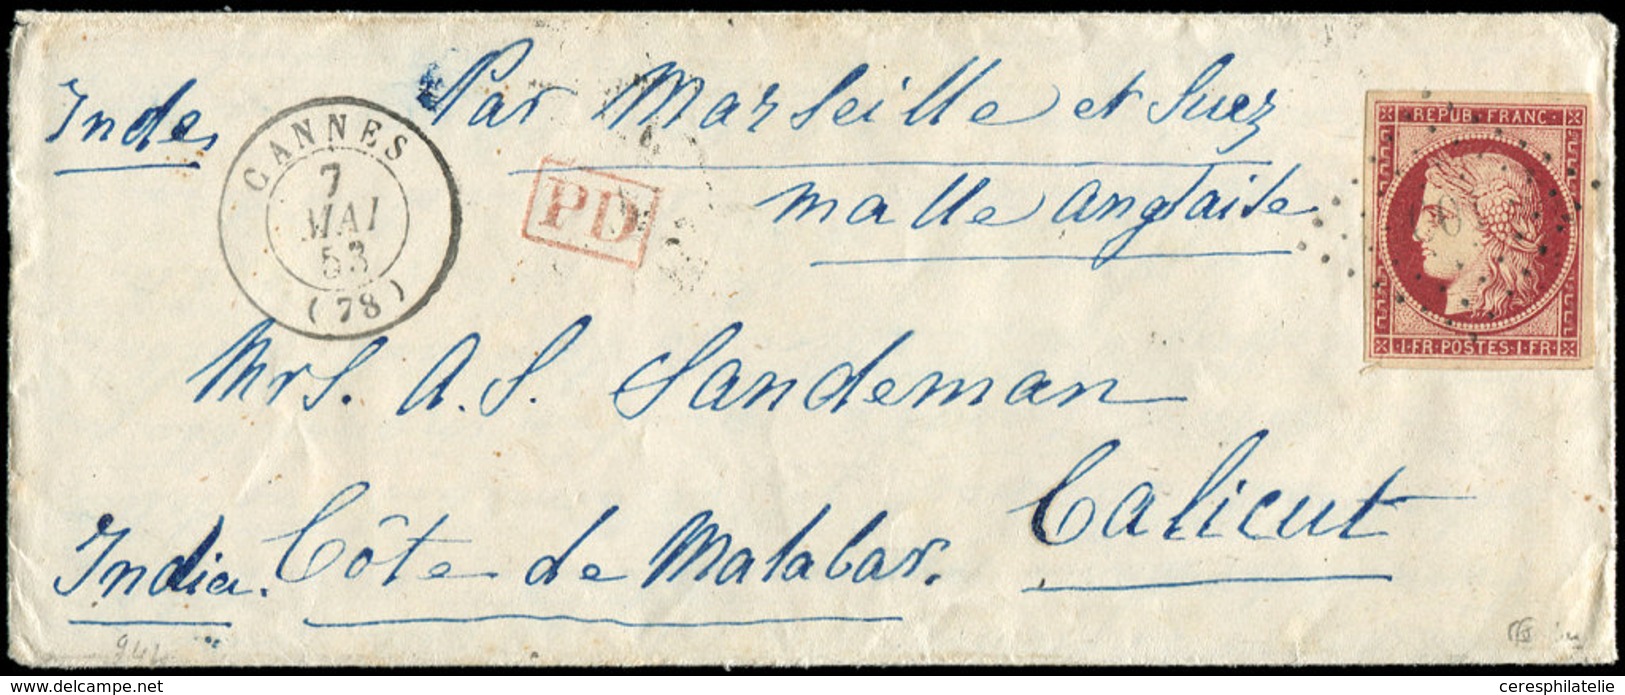 Inde
Par Marseille et Suez
malle anglaise
CANNES
7
MAI
53
(78)
PD
REPUB FRANC
1·FR·POSTES·1·FR
Mrs. A. S. Sandeman
Calicut
India. Côte de Malabar.
delcampe.net
ceresphilatelie